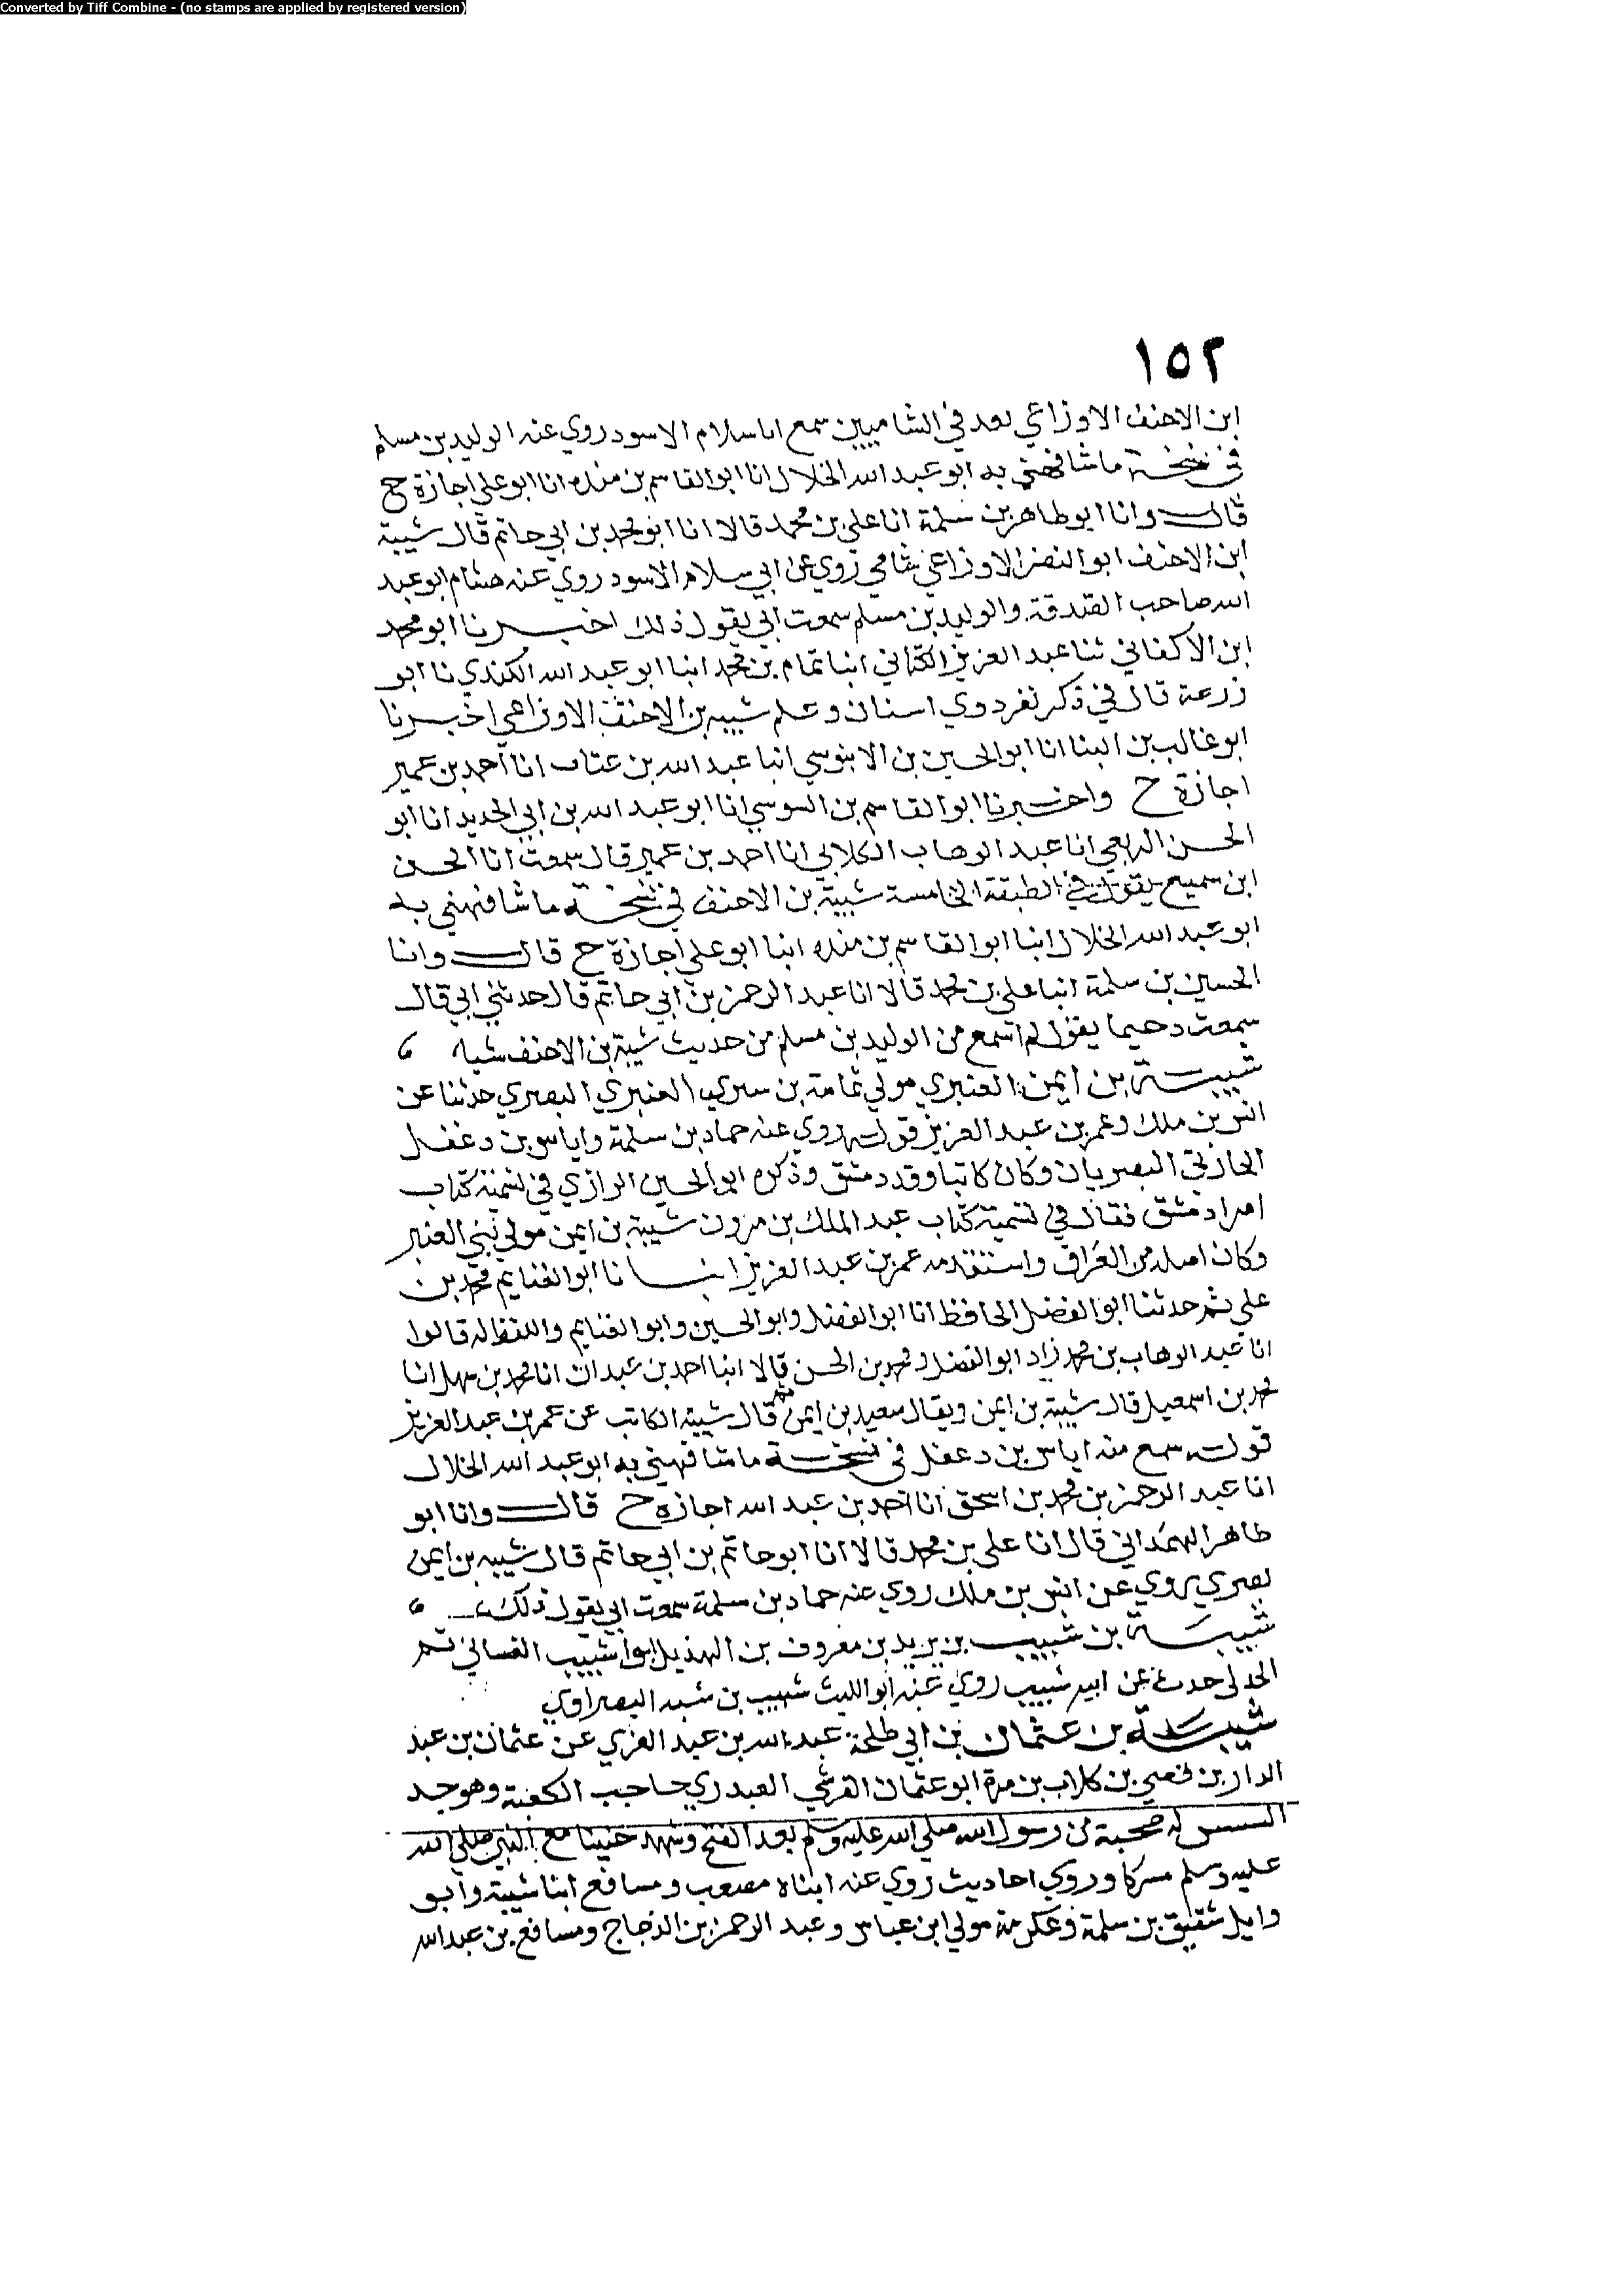 Converted by Tiff Combine - (no stamps are applied by registered version)
١٥٢
ابن الاحنف الاوزاعي يعد في الشاميين سمع ابا سلام الاسود روي عنه الوليد بن مسلم
في نسخة ما شافهني به ابو عبد الله الخلال انا ابو القاسم بن منده انا ابو علي اجازة ح
قال وانا ابو طاهر بن سلمة انا علي بن محمد قالا انا ابو محمد بن ابي حاتم قال شيبة
ابن الاحنف ابو النضر الاوزاعي شامي روي عن ابي سلام الاسود روي عنه هشام ابو عبد
الله صاحب الصدقة والوليد بن مسلم سمعت ابي يقول ذلك اخبرنا ابو محمد
ابن الاكفاني ثنا عبد العزيز الكتاني انبا تمام بن محمد انبا ابو عبد الله الكندي نا ابو
زرعة قال في ذكر نفر ذوي اسنان وعلم شيبه بن الاحنف الاوزاعي اخبرنا
ابو غالب بن البنا انا ابو الحسين بن الابنوسي انبا عبد الله بن عتاب انا احمد بن عمير
اجازة ح واخبرنا ابو القاسم بن السوسي انا ابو عبد الله بن ابي الحديد انا ابو
الحسن الربعي انا عبد الوهاب الكلابي انا احمد بن عمير قال سمعت ابا الحسن
ابن سميع يقول في الطبقة الخامسة شيبة بن الاحنف في نسخة ما شافهني به
ابو عبد الله الخلال انبا ابو القاسم بن منده انبا ابو علي اجازة ح قال وانا
الحسين بن سلمة انبا علي بن محمد قالا انا عبد الرحمن بن ابي حاتم قال حدثني ابي قال
سمعت دحيما يقول لم اسمع من الوليد بن مسلم من حديث شيبة بن الاحنف شيا
شيبة بن ايمن العنبري مولي ثمامة بن سري العنبري البصري حدثنا عن
انس بن ملك وعمر بن عبد العزيز قوله روي عنه حماد بن سلمة واياس بن دغفل
الحارثي البصريان وكان كاتبا وقد دمشق وذكره ابو الحسين الرازي في تسمية كتاب
امرا دمشق فقال في تسمية كتاب عبد الملك بن مرون شيبة بن ايمن مولي بني العنبر
وكان اصله من العراق واستقدمه عمر بن عبد العزيز انبانا ابو الغنايم محمد بن
علي ثم حدثنا ابو الفضل الحافظ انا ابو الفضل وابو الحسين وابو الغنايم واللفظ له قالوا
انا عبد الوهاب بن محمد زاد ابو الفضل ومحمد بن الحسن قالا انبا احمد بن عبدان انا محمد بن سهل انا
محمد بن اسمعيل قال شيبة بن ايمن ويقال سعيد بن ايمن قال شيبة الكاتب عن عمر بن عبد العزيز
قوله سمع منه اياس بن دغفل في نسخة ما شافهني به ابو عبد الله الخلال
انا عبد الرحمن بن محمد بن اسحق انا احمد بن عبد الله اجازه ح قال وانا ابو
طاهر الهمداني قال انا علي بن محمد قالا انا ابو حاتم بن ابي حاتم قال شيبه بن ايمن
بصري يروي عن انس بن ملك روي عنه حماد بن سلمة سمعت ابي يقول ذلك
شيبة بن شبيب بن يزيد بن معروف بن الهذيل ابو شبيب الغساني ثم
حدث عن ابيه شبيب روي عنه ابو الليث شبيب بن
شيبة بن عثمان بن ابي طلحة عبد الله بن عبد العزي عن عثمان بن عبد
الدار بن قصي بن كلاب بن مرة ابو عثمان القرشي العبدري حاجب الكعبة وهو جد
له صحبة من رسول الله صلي الله عليه وسلم بعد الفتح وشهد حنينا مع النبي صلي الله
عليه وسلم مسركا وروي احاديث روي عنه ابناه مصعب ومسافع ابنا شيبة وابو
وايل شقيق بن سلمة وعكرمة مولي ابن عباس وعبد الرحمن بن الزجاج ومسافع بن عبد الله